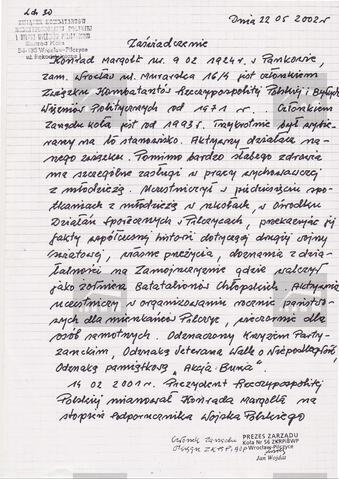 Ldz 30
ZWIĄZEK KOMBATANTÓW
RZECZYPOSPOLITEJ POLSKIEJ
I BYŁYCH WIĘŹNIÓW POLITYCZNYCH
Zarząd Koła
54-130 Wrocław-Pilczyce
Dnia 22 05 2002 r
Zaświadczenie
Konrad Margolt ur. 9 02 1924 r. w Pankowie,
zam. Wrocław ul. Murarska 16/4 jest członkiem
Związku Kombatantów Rzeczypospolitej Polskiej i Byłych
Więźniów Politycznych od 1971 r. Członkiem
Zarządu koła jest od 1993 r. Trzykrotnie był wybie-
rany na to stanowisko. Aktywny działacz na-
szego związku. Pomimo bardzo słabego zdrowia
ma szczególne zasługi w pracy wychowawczej
z młodzieżą. Uczestniczył w pięćdziesięciu spot-
kaniach z młodzieżą w szkołach, w Ośrodku
Działań Społecznych w Pilczycach, przekazując jej
fakty współczesnej historii dotyczącej drugiej wojny
światowej, własne przeżycia, doznania z dzia-
łalności na Zamojszczyźnie gdzie walczył
jako żołnierz Batalionów Chłopskich. Aktywnie
uczestniczy w organizowaniu rocznic państwo-
wych dla mieszkańców Pilczyc, wieczornie dla
osób samotnych. Odznaczony Krzyżem Party-
zanckim, Odznaką Weterana Walk o Niepodległość,
Odznaką pamiątkową "Akcja Burza".
14 02 2001 r. Prezydent Rzeczypospolitej
Polskiej mianował Konrada Margolta na
stopień podporucznika Wojska Polskiego
Członek Zarządu
PREZES ZARZĄDU
Koła Nr 56 ZKRPiBWP
Wrocław-Pilczyce
Jan Wojda